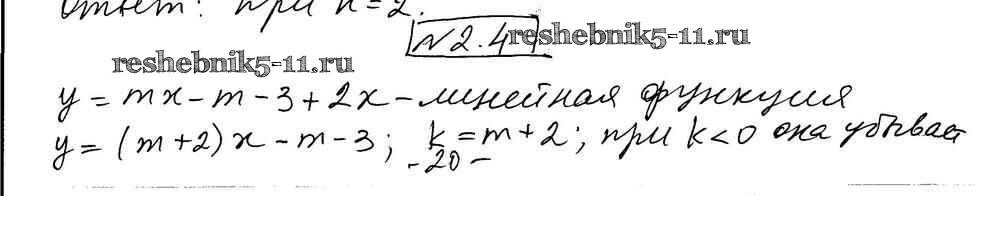 Ответ: при k=2.
№2.4
reshebnik5-11.ru
reshebnik5-11.ru
y = mx - m - 3 + 2x - линейная функция
y = (m+2)x - m - 3; k = m+2; при k<0 она убывает
- 20 -